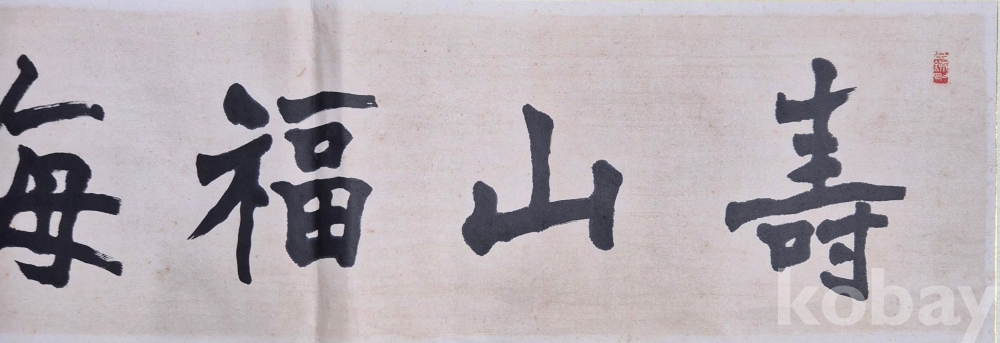 壽山福海
kobay